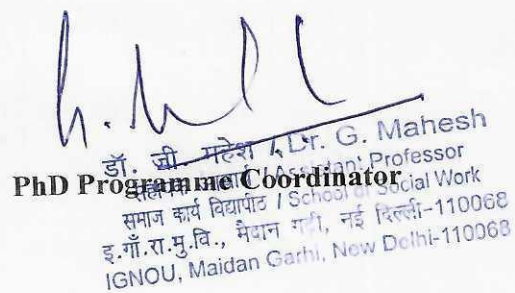 डॉ. जी. महेश / Dr. G. Mahesh
सहायक आचार्य / Assistant Professor
PhD Programme Coordinator
समाज कार्य विद्यापीठ / School of Social Work
इ.गाँ.रा.मु.वि., मैदान गढ़ी, नई दिल्ली-110068
IGNOU, Maidan Garhi, New Delhi-110068